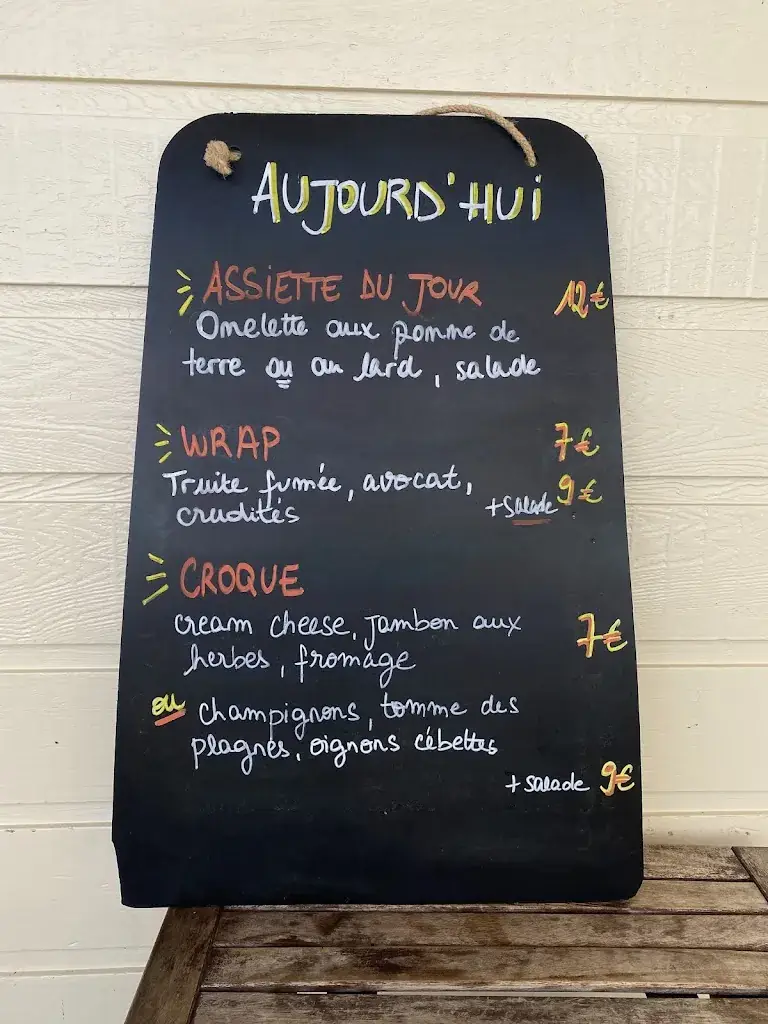 AUJOURD'HUI
ASSIETTE DU JOUR 12€
Omelette aux pomme de
terre ou au lard, salade
WRAP 7€
Truite fumée, avocat,
crudités +salade 9€
CROQUE
cream cheese, jambon aux
herbes, fromage 7€
ou champignons, tomme des
plagnes, oignons cébettes
+ salade 9€